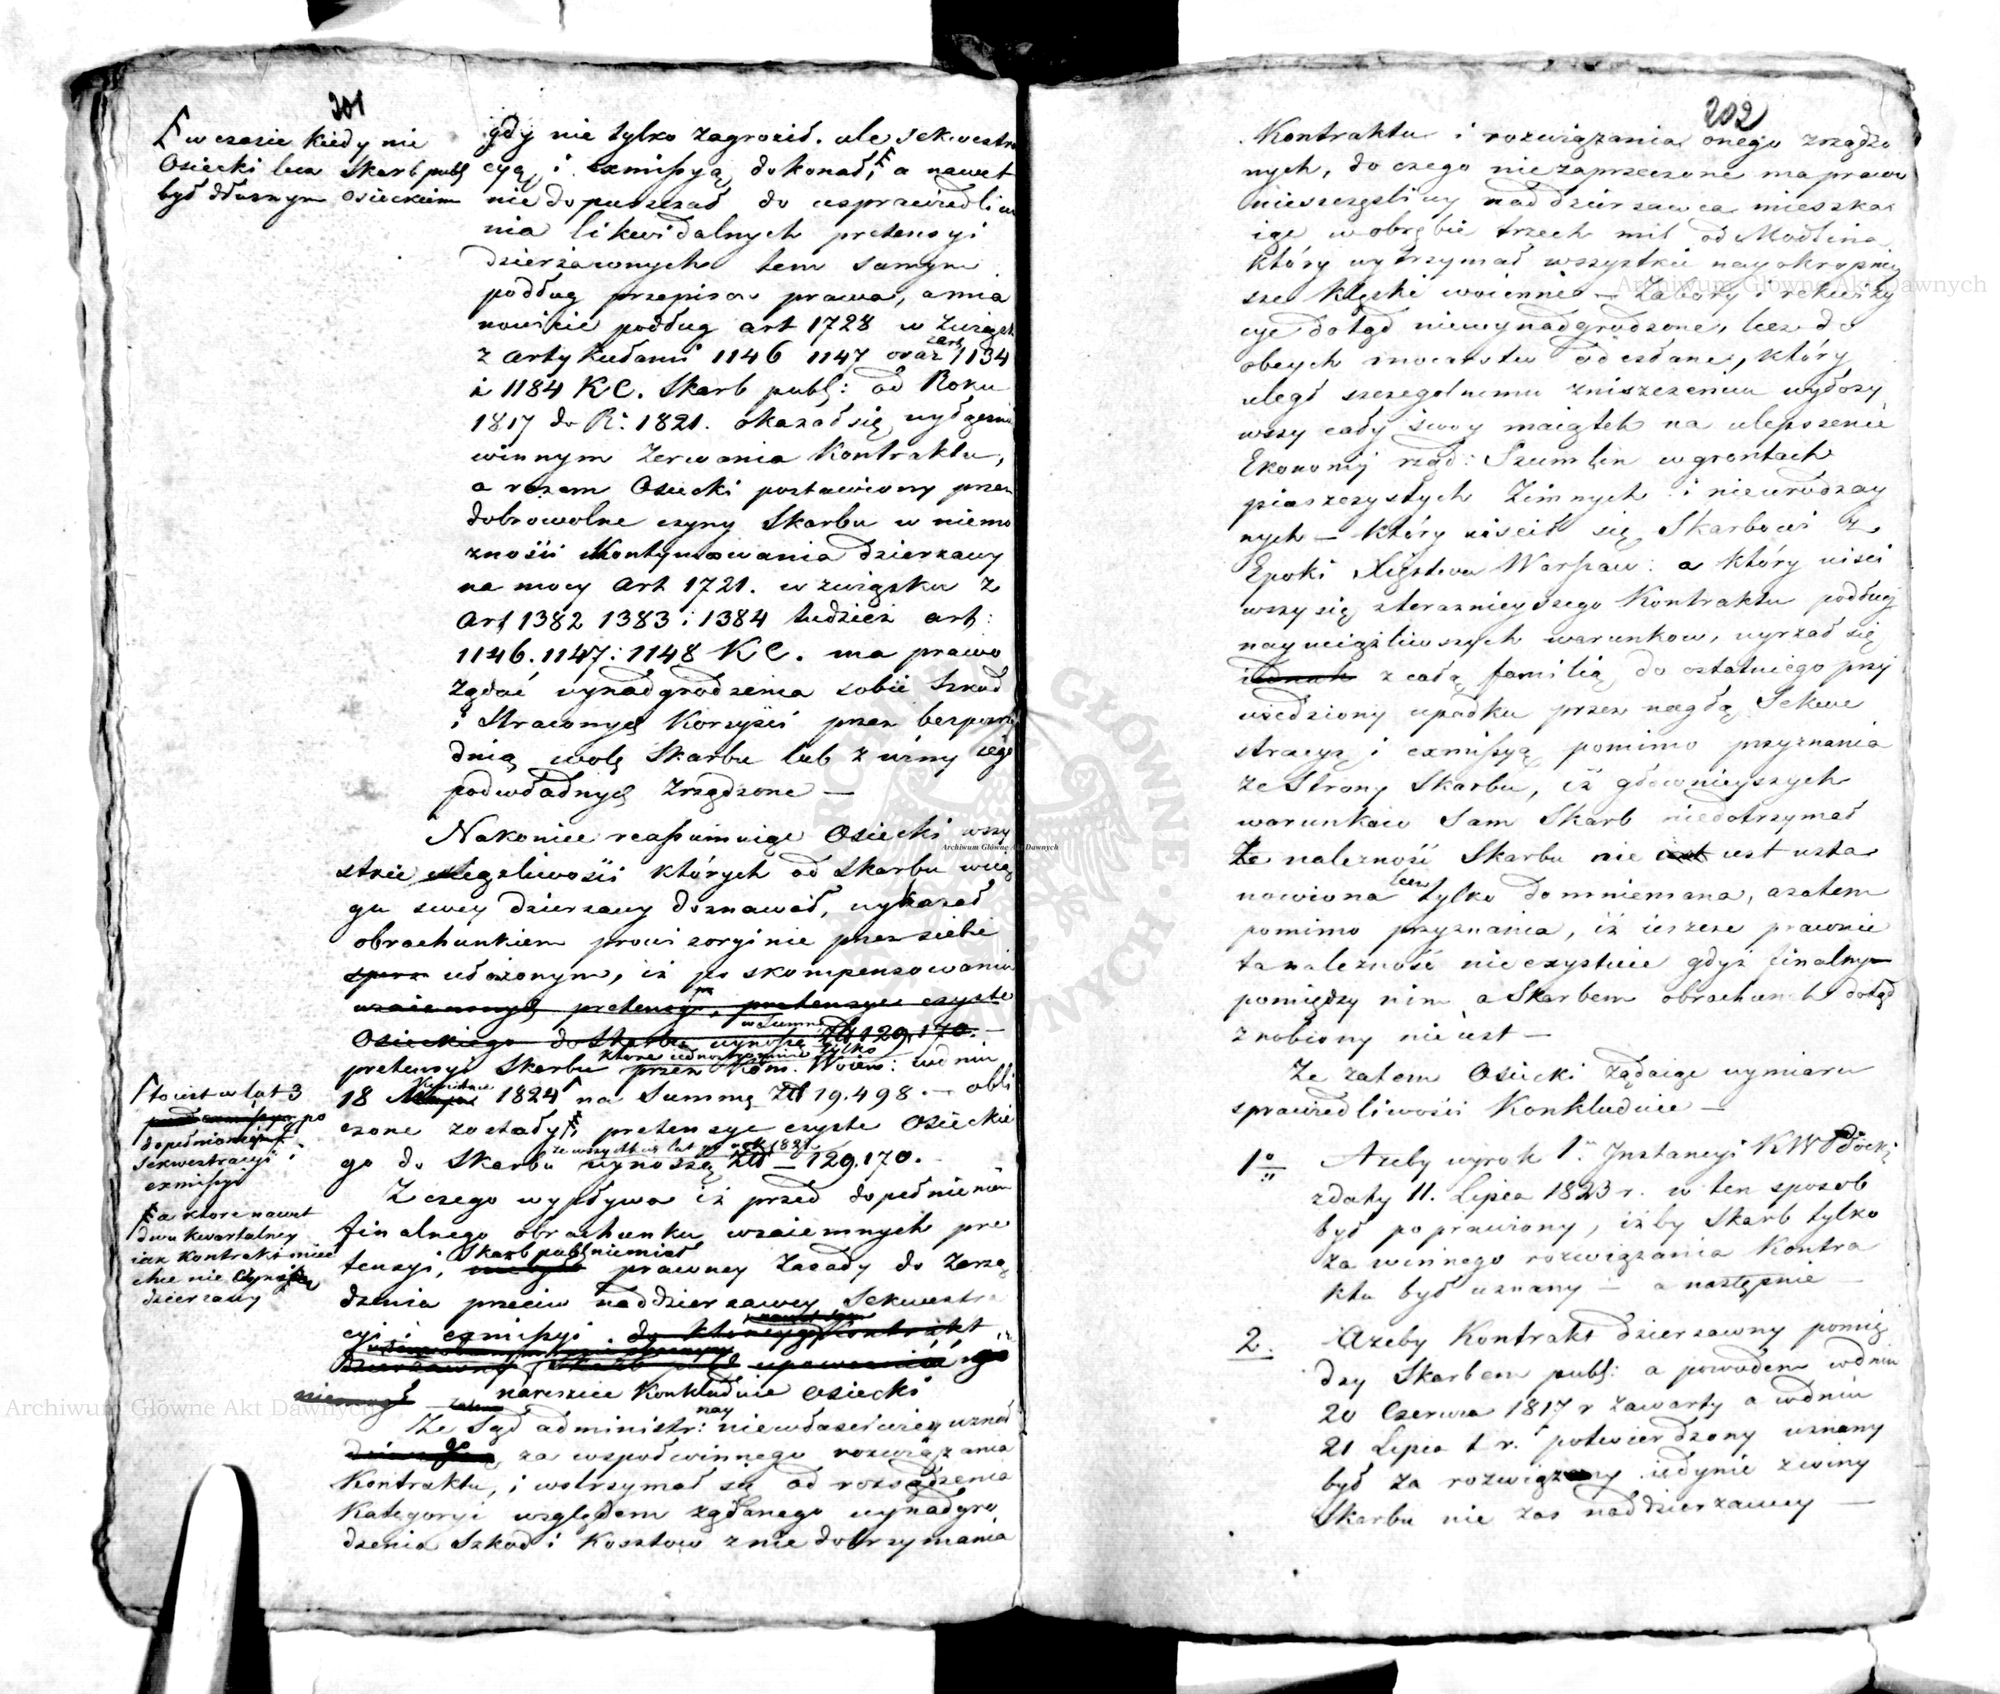 201
w czasie kiedy nie
Osiecki lecz Skarb publ
był dłużnym Osieckiemu
gdy nie tylko zagroził, ale sekwestra
cyą i exmissyą dokonał, a nawet
niedopuszczał do usprawiedliw
nia likwidalnych pretensyi
dzierżawnych tem samym
podług przepisów prawa, a mia
nowicie podług art 1728 w związk
z Artykułami 1146 1147 oraz 1134
i 1184 KC. Skarb publ: od Roku
1817 do R: 1821. okazał się wyłączni
winnym zerwania Kontraktu,
a razem Osiecki postawiony przez
dobrowolne czyny Skarbu w niemo
żności Kontynuowania dzierżawy
na mocy Art 1721. w związku z
Art 1382 1383 i 1384 tudzież art:
1146. 1147 i 1148 KC. ma prawo
żądać wynadgrodzenia sobie szkod
i straconych korzyści przez bezpośre
dnią wolę Skarbu lub z winy iego
podwładnych zrządzone —
Nakoniec reassumuiąc Osiecki wszy
stkie uciążliwości których od Skarbu wcią
gu swey dzierżawy doznawał, wykazał
obrachunkiem prowizoryinie przez siebie
ułożonym, iż po skompensowaniu
wzaiemnych pretensyi, pretensye czyste
Osieckiego do Skarbu wynoszą w summie Zł 129,170. —
które iednostronnie tylko
pretensyi Skarbu przez Kom. Woiew: w dniu
18 Kwietnia 1824 na Summę Zł 19.498. — obli
czone zostały, pretensye czyste Osieckie
ze wszystkich lat po rok 1821
go do Skarbu wynoszą Zł — 129.170. —
to iest w lat 3
po
dopełnioney
sekwestracyi i
exmissyi
a które nawet
dwu kwartalney
iak kontrakt mieć
chce nie wynoszą
dzierżawy
Z czego wypływa iż przed dopełnieniem
finalnego obrachunku wzaiemnych pre
Skarb publ niemiał
tensyi, prawney zasady do zarzą
dzenia przeciw naddzierżawcy Sekwestra
cyi i exmissyi. do którey go Kontrakt
dzierżawny Skarb upoważnia
niemógł
nareszcie Konkluduie Osiecki
Że Sąd administr: naynie właściwiey uznał
go za wspołwinnego rozwiązania
Kontraktu, i wstrzymał się od rozsądzenia
Kategoryi względem żądanego wynadgro
dzenia Szkod i Kosztow z niedotrzymania
202
Kontraktu i rozwiązania onego zrządzo
nych, do czego niezaprzeczone ma prawo
nieszczęśliwy naddzierżawca mieszka
iąc w obrębie trzech mil od Modlina
który wytrzymał wszystkie nayokropniey
sze klęski woienne — zabory i rekwizy
cye dotąd niewynadgrodzone, lecz do
obcych mocarstw odesłane, który
uległ szczegolnemu zniszczeniu wyłoży
wszy cały swoy maiątek na ulepszenie
Ekonomij rząd: Szumlin w gruntach
piaszczystych zimnych i nieurodzay
nych — który uiścił się Skarbowi z
Epoki Xięstwa Warszaw: a który uiści
wszy się z teraznieyszego Kontraktu podług
nayuciążliwszych warunkow, uyrzał się
z całą familią do ostatniego przy
wiedziony upadku przez nagłą Sekwe
stracyą i exmissyą pomimo przyznania
ze Strony Skarbu, iż głównieyszych
warunków Sam Skarb niedotrzymał
Że należność Skarbu nie iest usta
nowiona lecz tylko domniemana, a zatem
pomimo przyznania, iż ieszcze prawnie
ta należność nie exystuie gdyż finalny
pomiędzy nim a Skarbem obrachunek dotąd
zrobiony nie iest —
Że zatem Osiecki żądaiąc wymiaru
sprawiedliwości Konkluduie —
1º Ażeby wyrok 1. Jnstancyi KWPłockiey
z daty 11. Lipca 1823 r. w ten sposob
był poprawiony, iżby Skarb tylko
za winnego rozwiązania Kontra
ktu był uznany — a następnie —
2. Ażeby Kontrakt dzierżawny pomię
dzy Skarbem publ: a powodem w dniu
20 Czerwca 1817 r zawarty a w dniu
21 Lipca t. r. potwierdzony uznany
był za rozwiązany iedynie z winy
Skarbu nie zas naddzierżawcy —